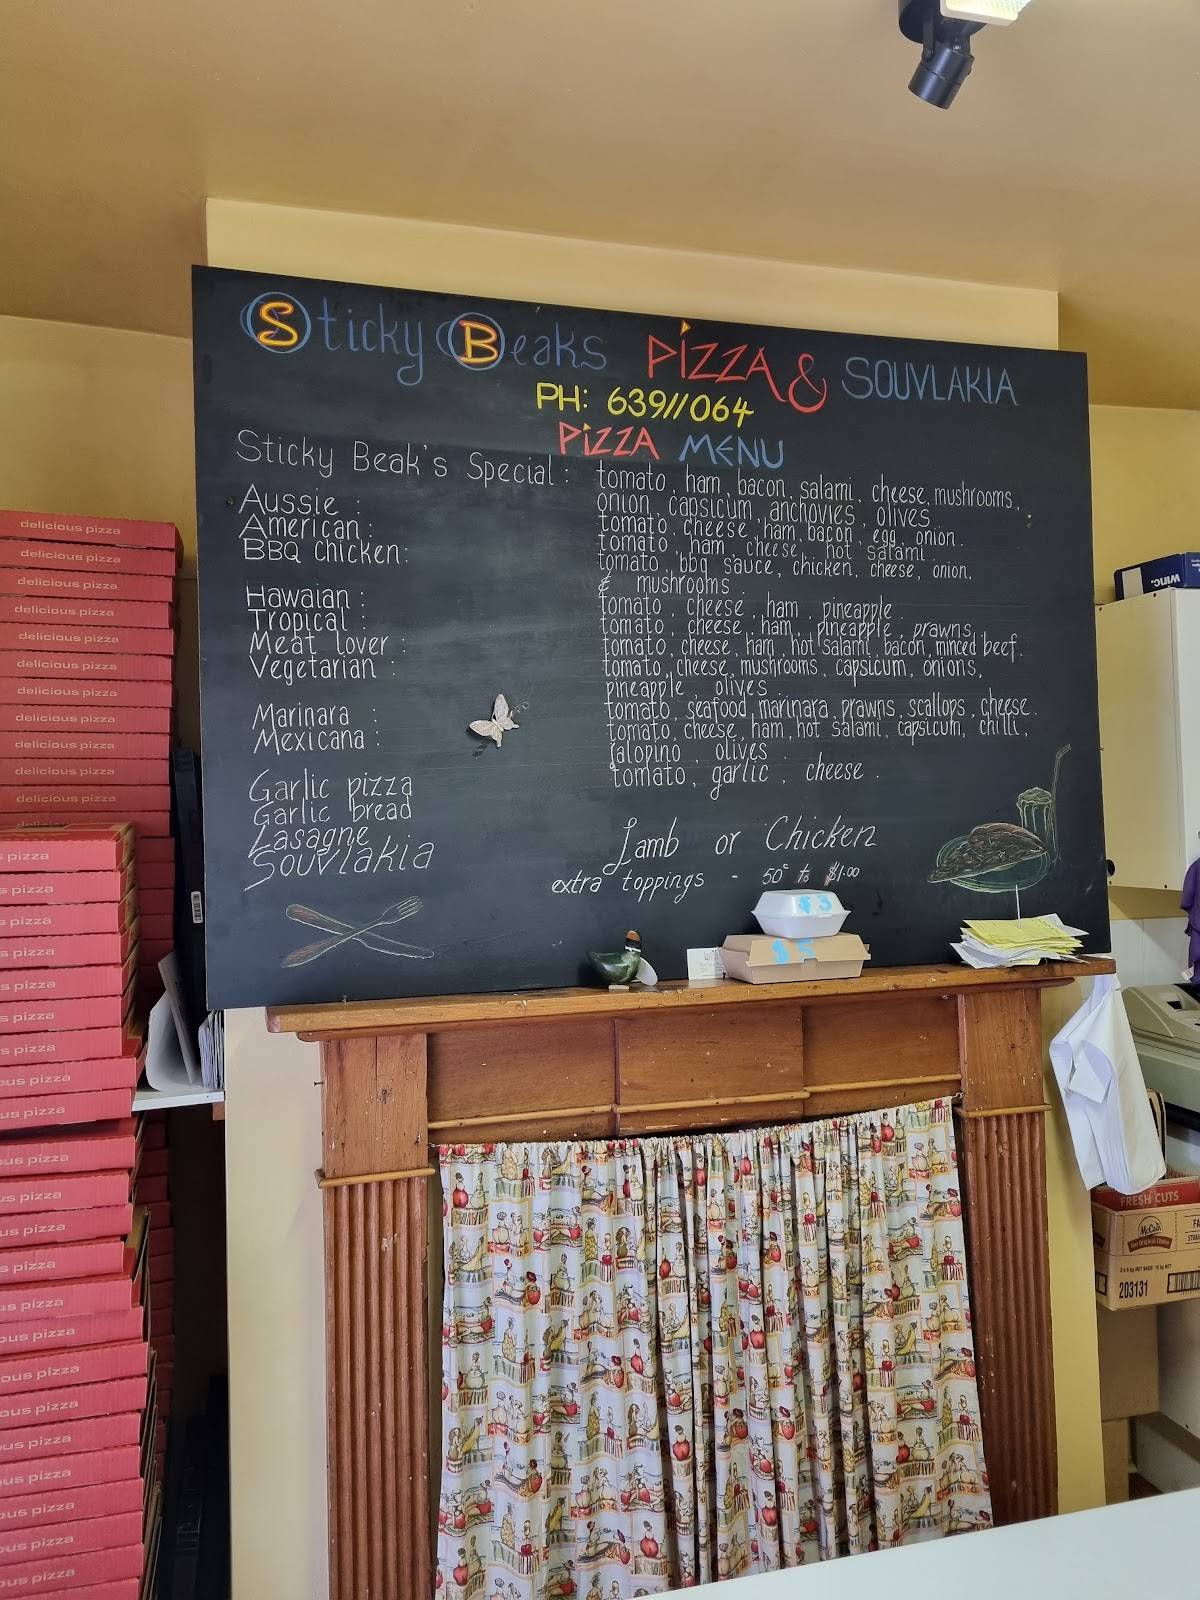 Sticky Beaks PIZZA & SOUVLAKIA
PH: 639//064
PIZZA MENU
Sticky Beak's Special : tomato, ham, bacon, salami, cheese, mushrooms,
onion, capsicum, anchovies, olives.
Aussie : tomato, cheese, ham, bacon, egg, onion.
American : tomato, ham, cheese, hot salami.
BBQ Chicken: tomato, bbq sauce, chicken, cheese, onion,
& mushrooms.
Hawaian : tomato, cheese, ham, pineapple.
Tropical : tomato, cheese, ham, pineapple, prawns.
Meat lover : tomato, cheese, ham, hot salami, bacon, minced beef.
Vegetarian : tomato, cheese, mushrooms, capsicum, onions,
pineapple, olives.
Marinara : tomato, seafood, marinara, prawns, scallops, cheese.
Mexicana : tomato, cheese, ham, hot salami, capsicum, chilli,
jalopino, olives.
Garlic pizza tomato, garlic, cheese.
Garlic bread
Lasagne
Souvlakia Lamb or Chicken
extra toppings - 50c to $1.00
$3
$5
delicious pizza
delicious pizza
delicious pizza
delicious pizza
delicious pizza
delicious pizza
delicious pizza
delicious pizza
delicious pizza
delicious pizza
delicious pizza
s pizza
s pizza
s pizza
s pizza
s pizza
s pizza
s pizza
us pizza
us pizza
us pizza
us pizza
us pizza
us pizza
us pizza
ous pizza
ous pizza
ous pizza
ous pizza
ous pizza
ous pizza
ous pizza
ous pizza
winc.
FRESH CUTS
McCain
203131